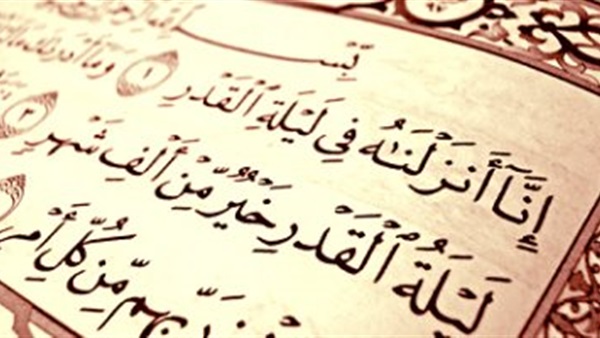 بِسْـ
إِنَّآ أَنزَلْنَـٰهُ فِى لَيْلَةِ ٱلْقَدْرِ ١ وَمَآ أَدْرَىٰكَ
لَيْلَةُ ٱلْقَدْرِ خَيْرٌ مِّنْ أَلْفِ شَهْرٍ ٣
رَبِّهِم مِّن كُلِّ أَمْرٍ